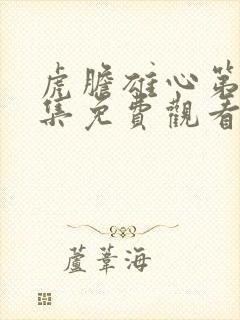 虎膽雄心第
集免費觀看
蘆葦海